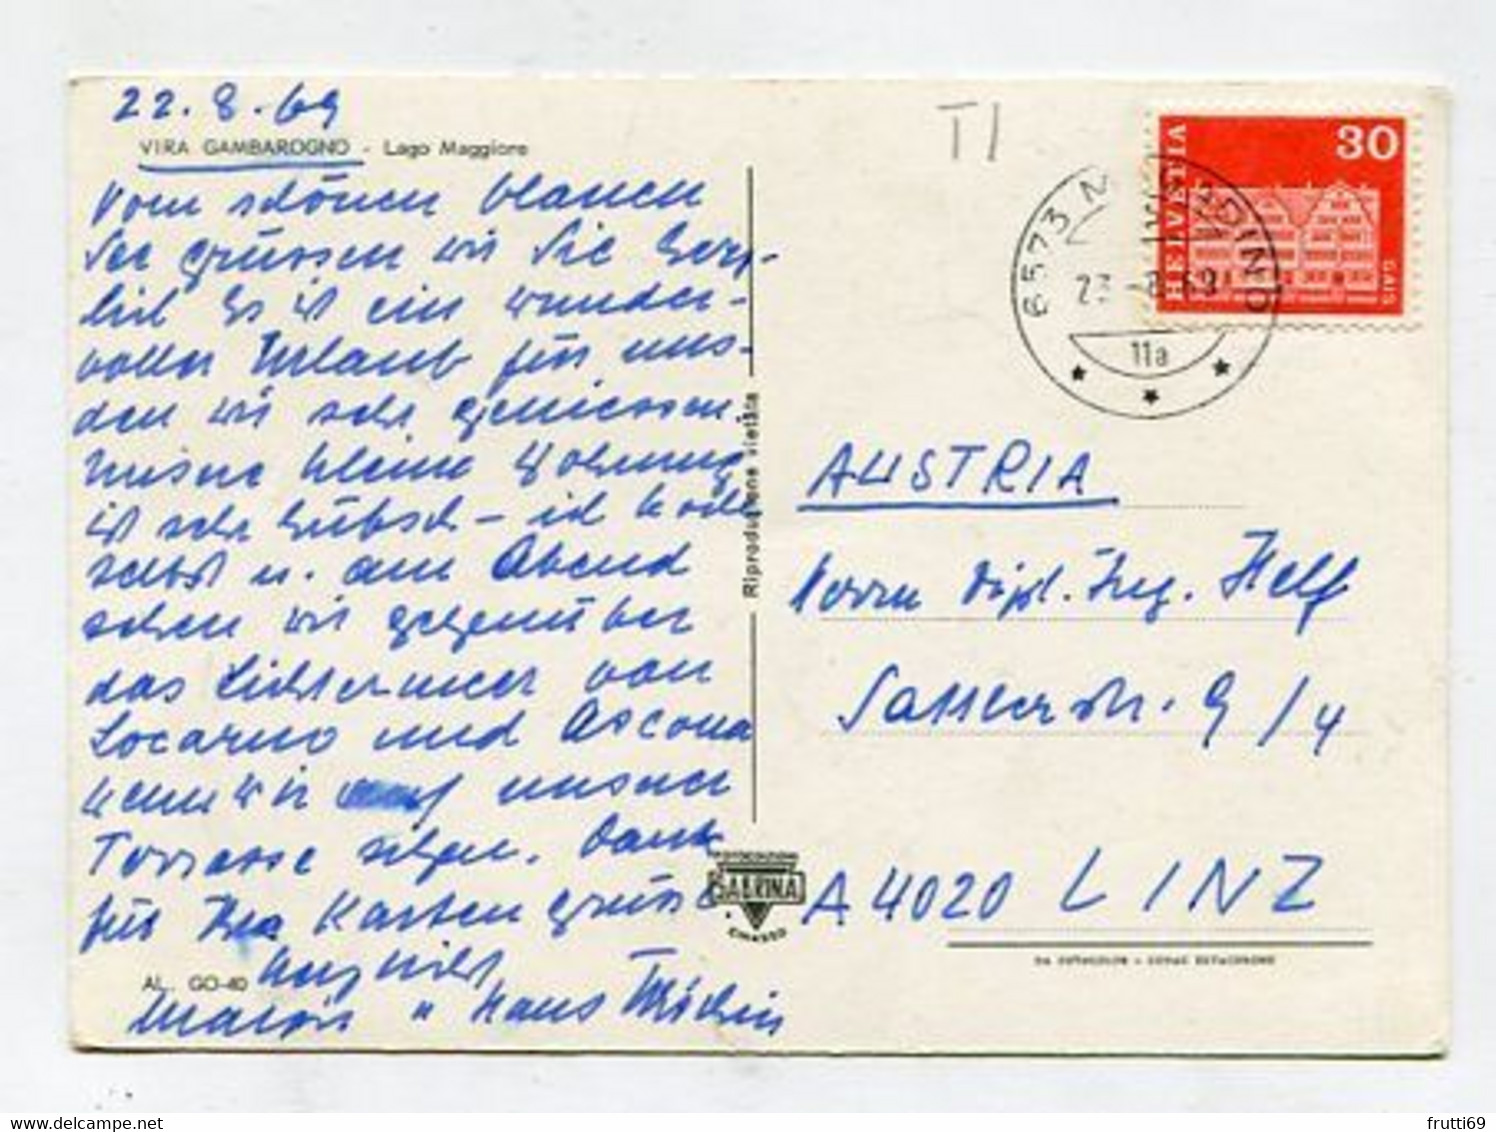 22.8.69
VIRA GAMBAROGNO - Lago Maggiore
Vom schönen blauen
See grüssen wir Sie herz-
lich Es ist ein wunder-
voller Urlaub für uns -
den wir sehr geniessen.
Unsere kleine Wohnung
ist sehr hübsch - ich koche
selbst u. am Abend
sehen wir gegenüber
das Lichtermeer von
Locarno und Ascona
wenn wir auf unserer
Terrasse sitzen. Dank
für Ihre Karten grüsse
AL. GO-40
Hans
Riproduzione vietata
SABRINA
CHIASSO
TI
HELVETIA
30
GAIS
6573 M
ADINO
23.-8.69
11a
AUSTRIA
Herrn Dipl. Ing. Helf
Sattlerstr. 9/4
A 4020 LINZ
frutti69
www.delcampe.net